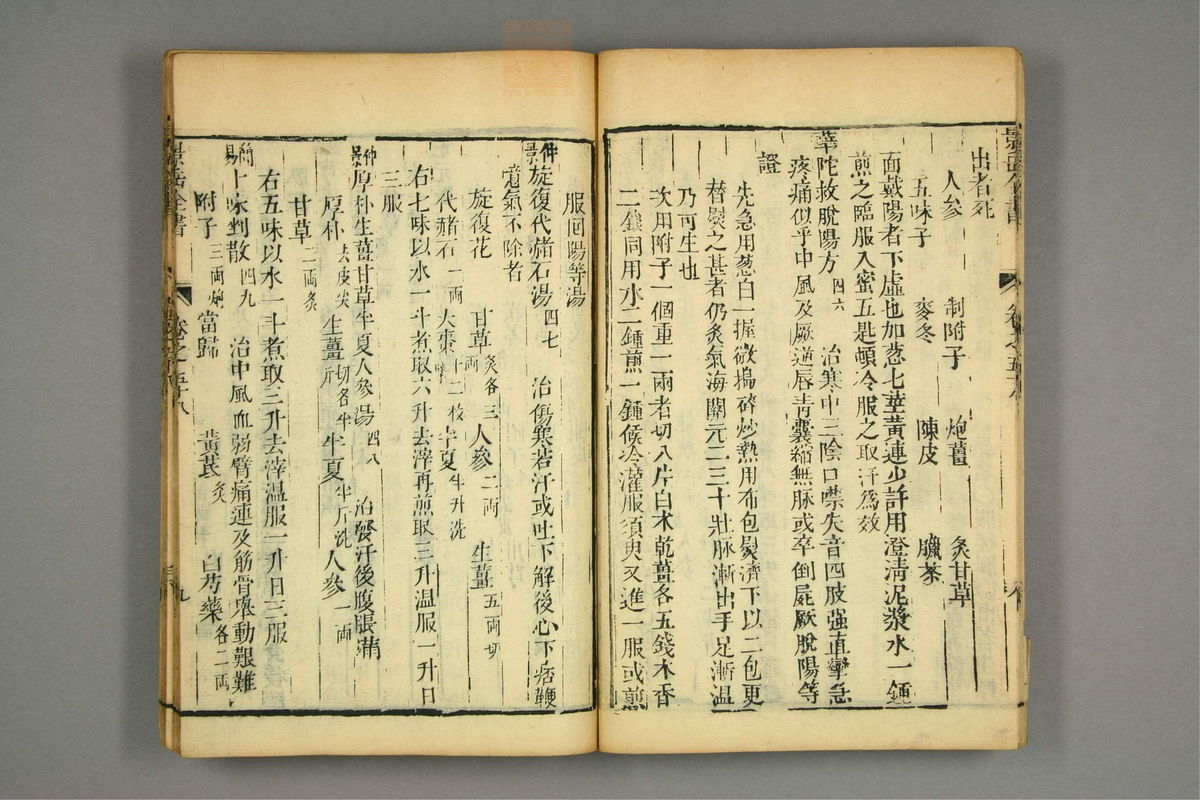 景岳全書
出者死
人參　制附子　炮薑　炙甘草
五味子　麥冬　陳皮　臘茶
面戴陽者下虛也加葱七莖黃連少許用澄清泥漿水一鍾
煎之臨服入蜜五匙頓冷服之取汗爲效
華陀救脫陽方四六　治寒中三陰口噤失音四肢强直攣急
疼痛似乎中風及厥逆唇青囊縮無脉或卒倒屍厥脫陽等
證
先急用葱白一握微搗碎炒熱用布包熨濟下以二包更
替熨之甚者仍炙氣海關元二三十壯脉漸出手足漸溫
乃可生也
次用附子一個重一兩者切八片白木乾薑各五錢木香
二錢同用水二鍾煎一鍾候冷灌服須臾又進一服或煎
服回陽等湯
仲景旋復代赭石湯四七　治傷寒若汗或吐下解後心下痞鞕
意氣不除者
旋復花　甘草炙各三兩　人參二兩　生薑五兩切
代赭石一兩　大棗十二枚擘　半夏半升洗
右七味以水一斗煮取六升去滓再煎取三升溫服一升日
三服
仲景厚朴生薑甘草半夏人參湯四八　治發汗後腹脹滿
厚朴去皮尖　生薑切各半斤　半夏半斤洗　人參一兩
甘草二兩炙
右五味以水一斗煮取三升去滓溫服一升日三服
簡易十味剉散四九　治中風血弱臂痛連及筋骨舉動艱難
附子三兩炮　當歸　黃芪炙　白芍藥各二兩
景岳全書　卷之五十八　九